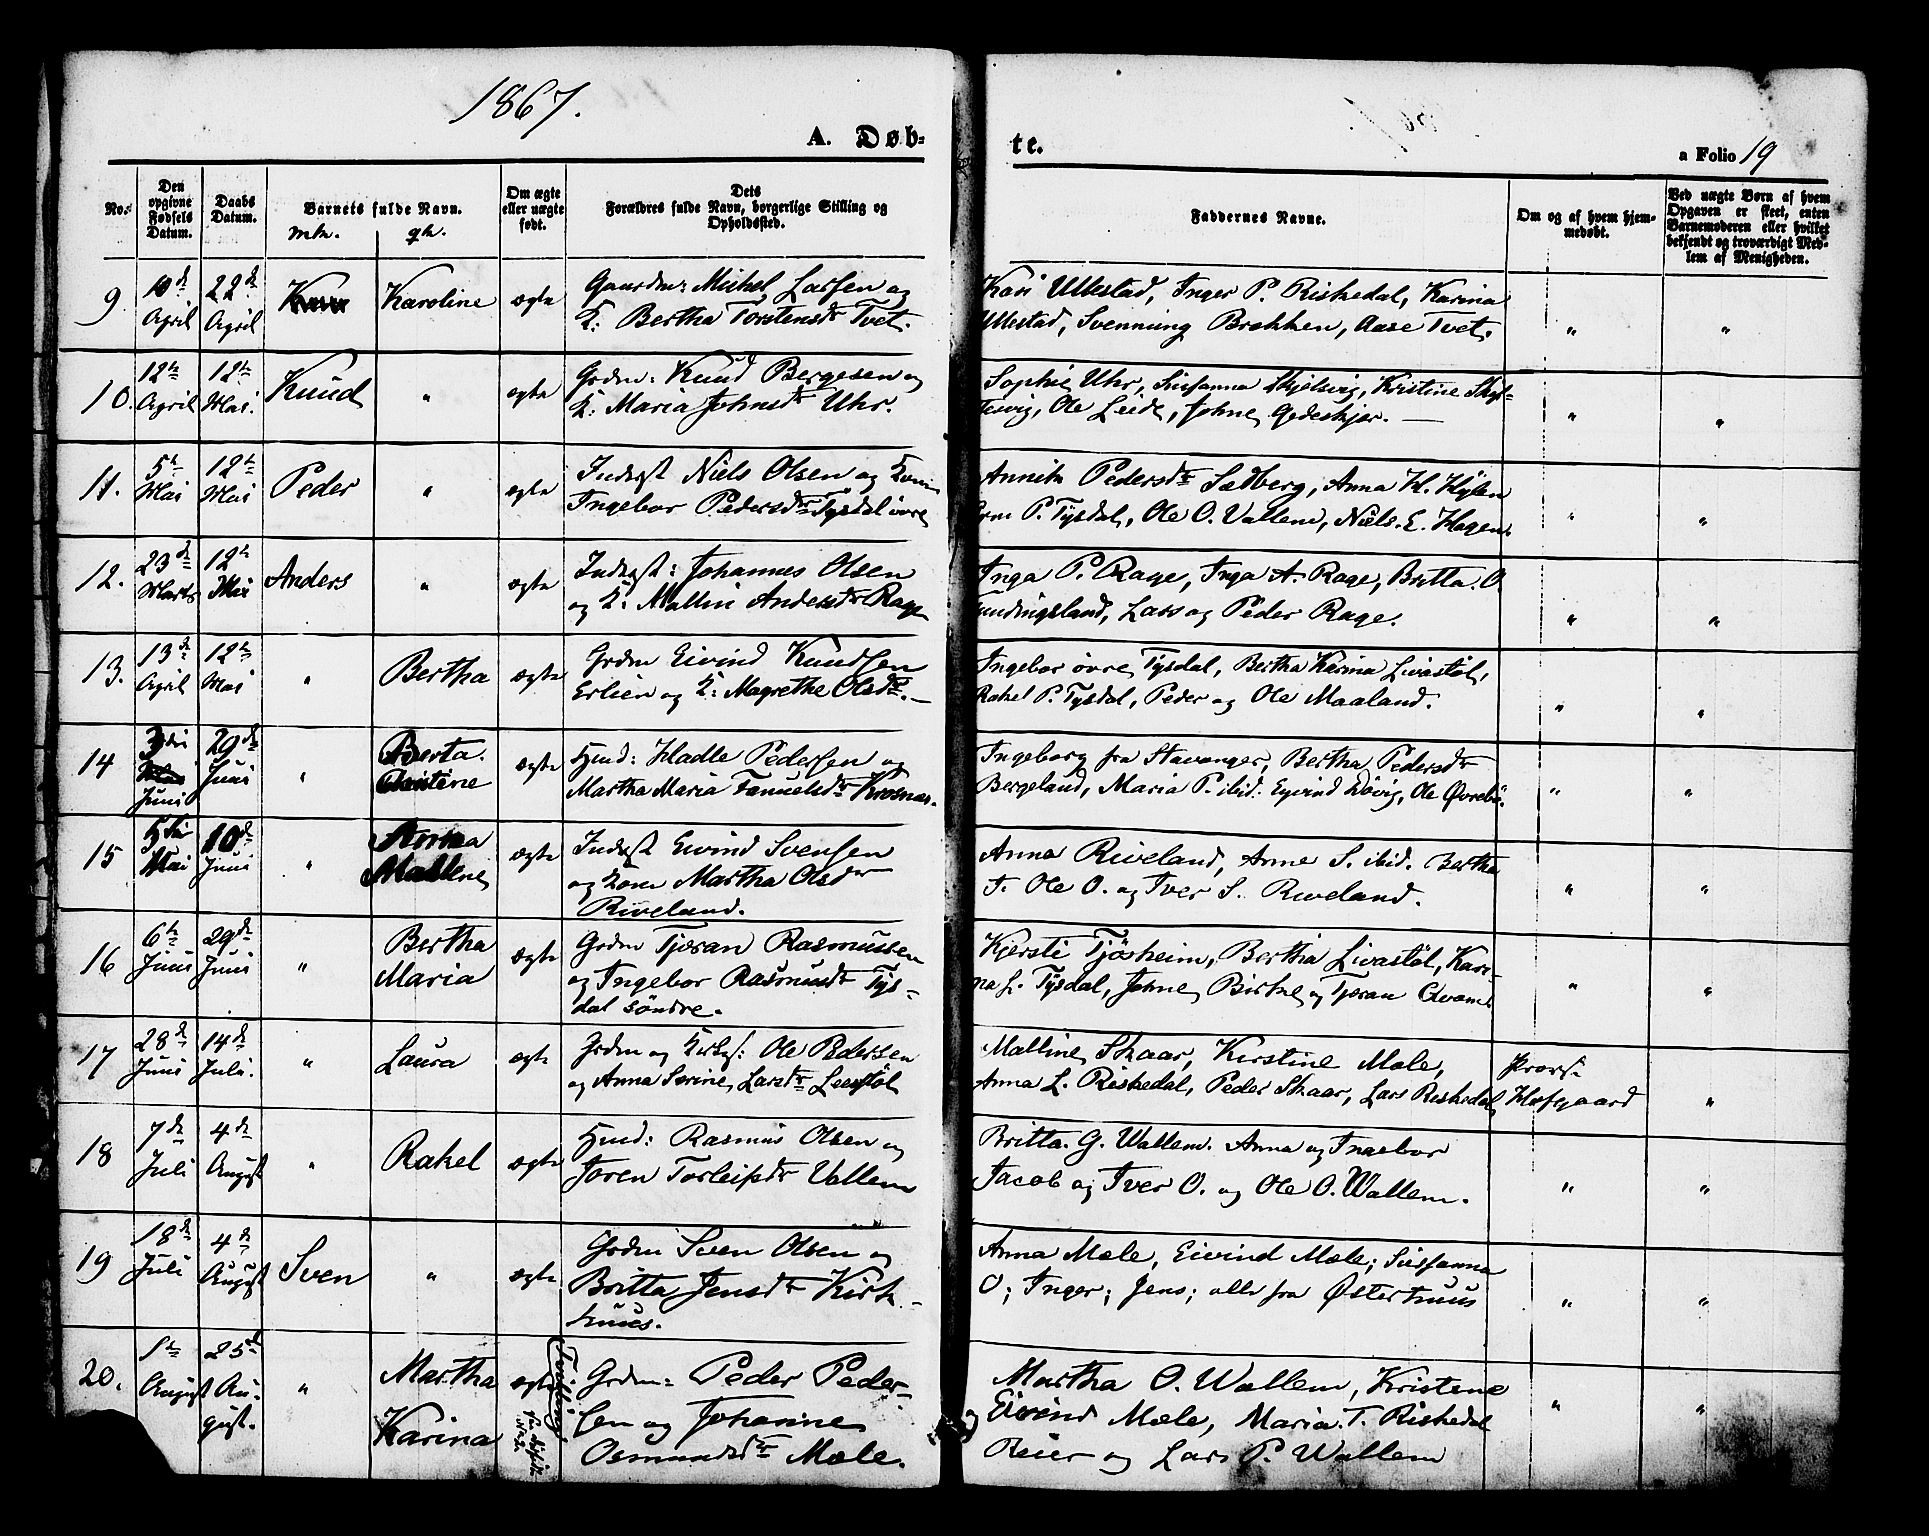 1867.
A. Døb-
te.
a Folio 19
No.
Den opgivne Fødsels Datum.
Daabs Datum.
Barnets fulde Navn.
mk. qk.
Om ægte eller uægte født.
Dets Forældres fulde Navn, borgerlige Stilling og Opholdssted.
Faddernes Navne.
Om og af hvem hjem-medøbt.
Ved uægte Børn af hvem Opgaven er skeet, enten Barnemoderen eller hvilket bekjendt og troværdigt Med-lem af Menigheden.
9 10de April 22de April Karoline ægte
Gaardm: Michel Larsen og
K: Bertha Torstensdr Tvet.
Kari Ullestad, Inger P. Riskedal, Karina
Ullestad, Svennung Brekken, Aase Tvet. " "
10. 12te April 12te Mai. Knud " ægte
Grdm: Knud Bergesen og
K: Maria Johnsdr Uhr.
Sophie Uhr, Susanna Skjelvig, Kristine Skjel-
vig, Ole Leide, Johne Gedeskjær. — " "
11. 5te Mai 12te Mai Peder " ægte
Inderst Niels Olsen og Kone
Ingebor Pedersdr Tysdal övre
Pedersdr Sedberg, Anna H. Hylen
P. Tysdal, Ole O. Vallem, Niels. E. Hagen. " "
12. 23de Marts 12te Mai Anders " ægte
Inderst: Johannes Olsen
og K: Mallin Andersdr Rage
Inga P. Rage, Inga A. Rage, Britta. O.
Lars og Peder Rage. " "
13. 13de April 12te Mai " Bertha ægte
Grdm Eivind Knudsen
Erlien og K: Magrethe Olsdr. —
Ingebor övre Tysdal, Bertha Karina Livastöl,
Rakel P. Tysdal, Peder og Ole Maaland. " "
14 3die Juni 29de Juni " Berta. Christine ægte
Hmd: Hadle Pedersen og
Martha Maria Fanuelsdr Krosnæs.
Ingeborg fra Stavanger, Bertha Pedersdr
Bergeland, Maria P. ibid: Eyvind Døvig, Ole Øvrebö. " "
15 5te Mai 10de Juni " Mallene ægte
Inderst Eivind Svensen
og Kone Martha Olsdr
Riveland.
Anna Riveland, Anne S. ibid. Bertha
T. Ole O. og Iver S. Riveland. " "
16 6te Juni 29de Juni " Bertha
Maria ægte
Grdm Tjøran Rasmussen
og Ingebor Rasmusdr Tys-
dal söndre.
Kjersti Tjösheim, Bertha Livastöl, Kari-
na L. Tysdal, Johne Birkne og Tjøran Qvame " "
17 28de Juni 14de Juli. " Laura ægte
Grdm og Kirkes: Ole Pedersen
og Anna Serine Larsdr Leerstöl
Malline Skaar, Kirstine Mæle,
Anna L. Riskedal, Peder Skaar, Lars Riskedal
Provst
Hofgaard "
18 7de Juli 4de August " Rakel ægte
Hmd: Rasmus Olsen og
Joren Torleifsdr Vallem
Britta. G. Wallem. Anna og Ingebor
Jacob og Iver O. og Ole O. Wallem. " "
19 18de Juli 4de August Sven " ægte
Grdm Sven Olsen og
Britta Jensdr Kirk-
huus.
Anna Mæle, Eivind Mæle; Sussanna
O; Inger; Jens; alle fra Østerhuus " "
20. 1te August 25de August. " Martha
Karina ægte
Grdm: Peder Peder-
sen og Johanne
Osmundsdr Mæle.
Martha O. Wallem, Kristene
og Eivind Mæle, Maria T. Riskedal
Reier og Lars P. Wallem " "